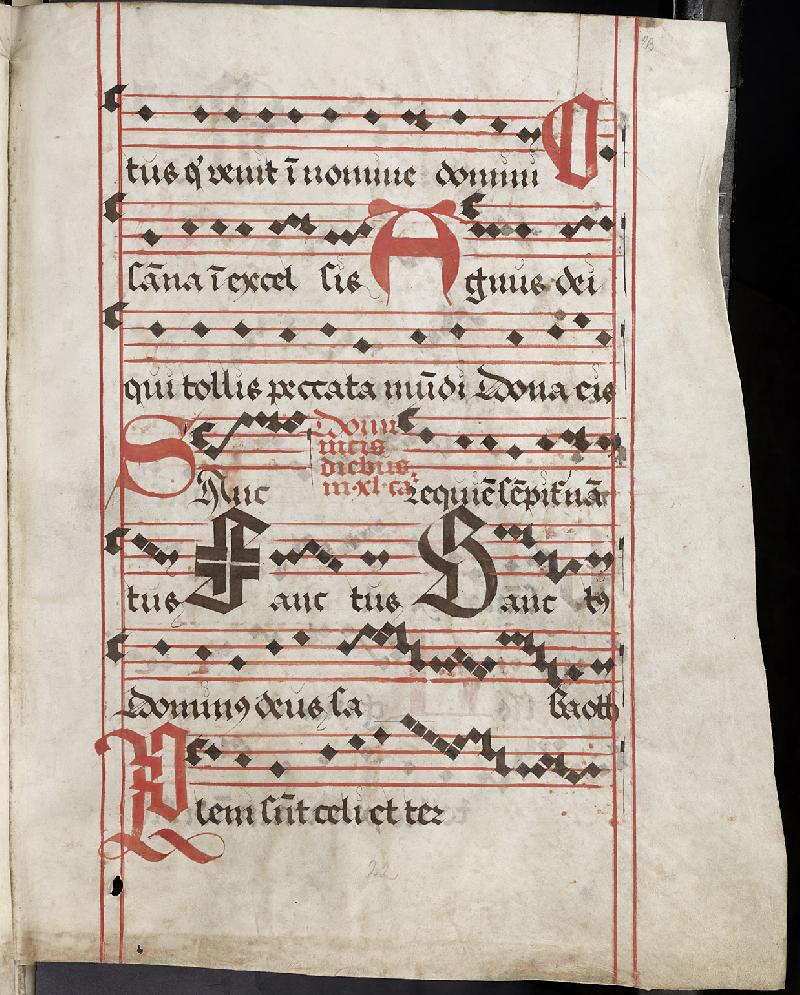 tus q̓ venit ī nomine domini O
sāna ī excel sis Agnus dei
qui tollis peccata mūdi Dona eis
Domi
nicis
diebus
in xl ca
SAnc requiē sēpit̓nā
tus Sanc tus Sanc tꝰ
Dominꝰ deus sa baoth
Pleni sūt celi et ter
22